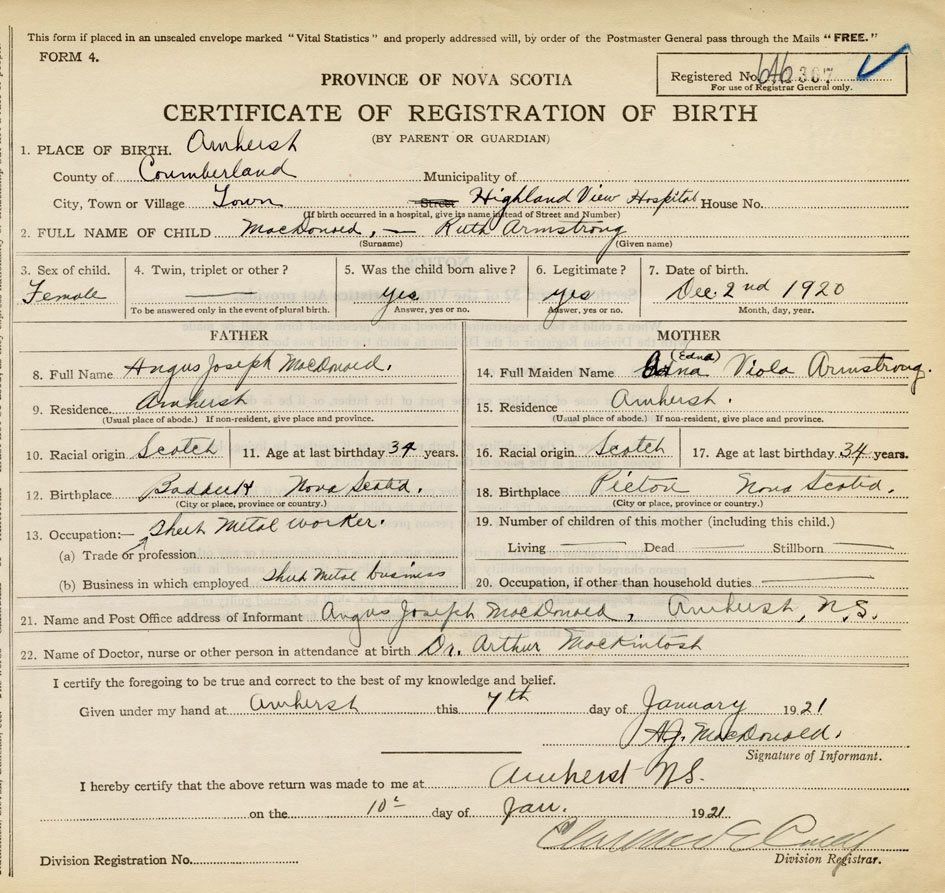 This form if placed in an unsealed envelope marked "Vital Statistics" and properly addressed will, by order of the Postmaster General pass through the Mails "FREE."
FORM 4.
PROVINCE OF NOVA SCOTIA
Registered No. 307
For use of Registrar General only.
CERTIFICATE OF REGISTRATION OF BIRTH
(BY PARENT OR GUARDIAN)
1. PLACE OF BIRTH. Amherst
County of Coumberland Municipality of
City, Town or Village Town Street Highland View Hospital House No.
(If birth occurred in a hospital, give its name instead of Street and Number)
2. FULL NAME OF CHILD MacDonald, — Ruth Armstrong
(Surname) (Given name)
3. Sex of child. 4. Twin, triplet or other? 5. Was the child born alive? 6. Legitimate? 7. Date of birth.
Female —— yes yes Dec. 2nd 1920
To be answered only in the event of plural birth. Answer, yes or no. Answer, yes or no. Month, day, year.
FATHER MOTHER
8. Full Name Angus Joseph MacDonald. 14. Full Maiden Name Edna (Edna) Viola Armstrong.
9. Residence. Amherst 15. Residence Amherst.
(Usual place of abode.) If non-resident, give place and province. (Usual place of abode.) If non-resident, give place and province.
10. Racial origin Scotch 11. Age at last birthday 34 years. 16. Racial origin Scotch 17. Age at last birthday 34 years.
12. Birthplace Baddeck Nova Scotia. 18. Birthplace Pictou Nova Scotia.
(City or place, province or country.) (City or place, province or country.)
13. Occupation:— Sheet Metal worker. 19. Number of children of this mother (including this child.)
(a) Trade or profession Living —— Dead —— Stillborn ——
(b) Business in which employed Sheet Metal business 20. Occupation, if other than household duties. ——
21. Name and Post Office address of Informant Angus Joseph MacDonald, Amherst, N.S.
22. Name of Doctor, nurse or other person in attendance at birth Dr. Arthur Mackintosh
I certify the foregoing to be true and correct to the best of my knowledge and belief.
Given under my hand at Amherst this 7th day of January 1921
A.J. MacDonald.
Signature of Informant.
I hereby certify that the above return was made to me at Amherst N.S.
on the 10th day of Jan. 1921
Division Registration No.
Division Registrar.